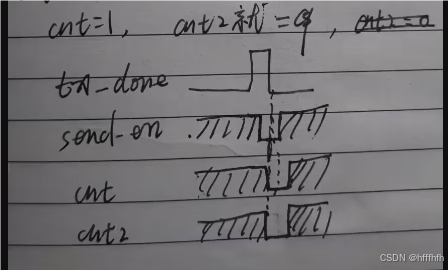 cnt=1, cnt2 就=9, cnt2=0
tx_done
send_en
cnt
cnt2
CSDN @hffffhh